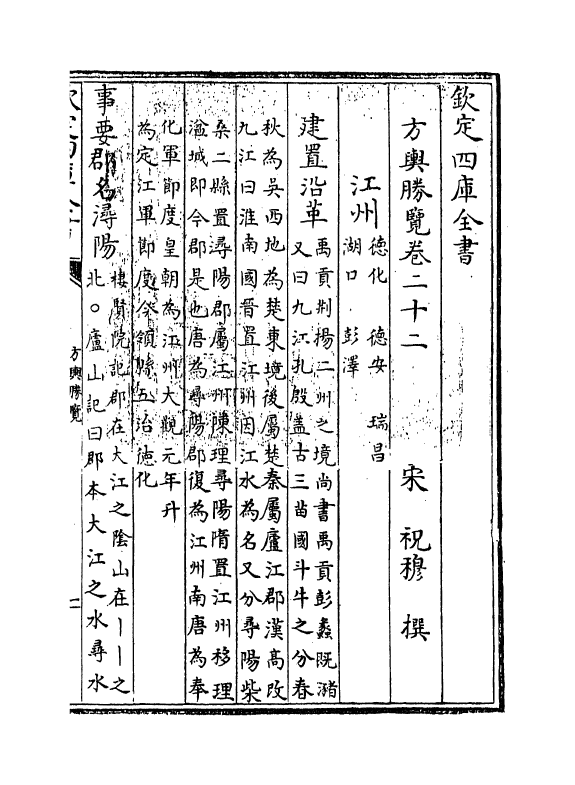 欽定四庫全書
方輿勝覽卷二十二
宋 祝穆 撰
江州
德化 德安 瑞昌
湖口 彭澤
建置沿革
禹貢荆揚二州之境尚書禹貢彭蠡既瀦
又曰九江孔殷蓋古三苗國斗牛之分春
秋為吳西地為楚東境後屬楚秦屬廬江郡漢高改
九江曰淮南國晉置江州因江水為名又分尋陽柴
桑二縣置尋陽郡屬江州陳理尋陽隋置江州移理
湓城即今郡是也唐為尋陽郡復為江州南唐為奉
化軍節度皇朝為江州大觀元年升
為定江軍節度今領縣五治德化
事要
郡名
潯陽
樓賢院記郡在大江之陰山在丨丨之
北○廬山記曰郡本大江之水尋水
方輿勝覽
一